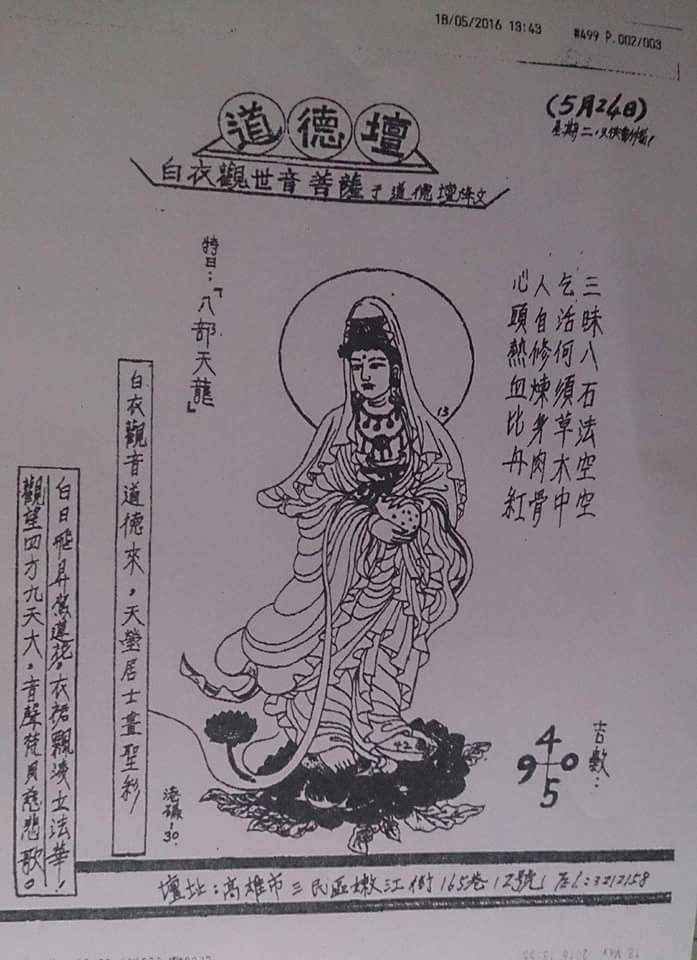 18/05/2016 13:43 #499 P.002/003
(5月24日)
道德壇
白衣觀世音菩薩于道德壇條文
三昧八石法空空
乞活何須草木中
人自修煉身肉骨
心頭熱血比丹紅
特曰：「八部天龍」
13
白衣觀音道德來，天瑩居士畫聖彩
衣裙飄
觀望四方九天大，音聲梵貝慈悲歌。
吉數：
4
9 0
5
42
30
壇址：高雄市三民區嫩江街165巷12號
3212158